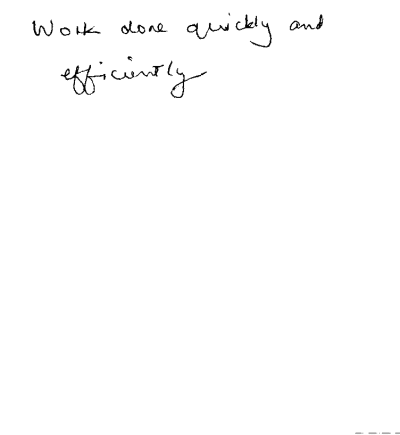 Work done quickly and
efficiently